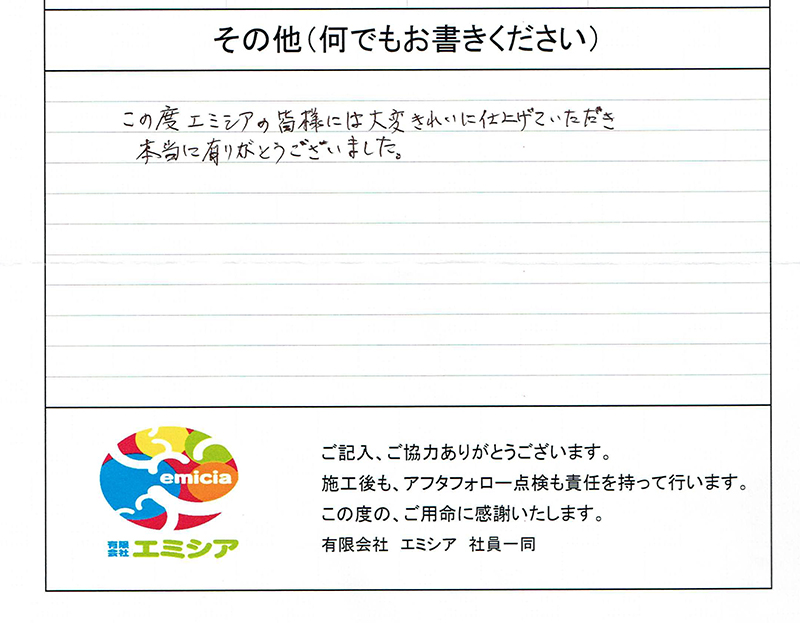 その他(何でもお書きください)
この度エミシアの皆様には大変きれいに仕上げていただき
本当に有りがとうございました。
emicia
有限会社 エミシア
ご記入、ご協力ありがとうございます。
施工後も、アフタフォロー点検も責任を持って行います。
この度の、ご用命に感謝いたします。
有限会社 エミシア 社員一同